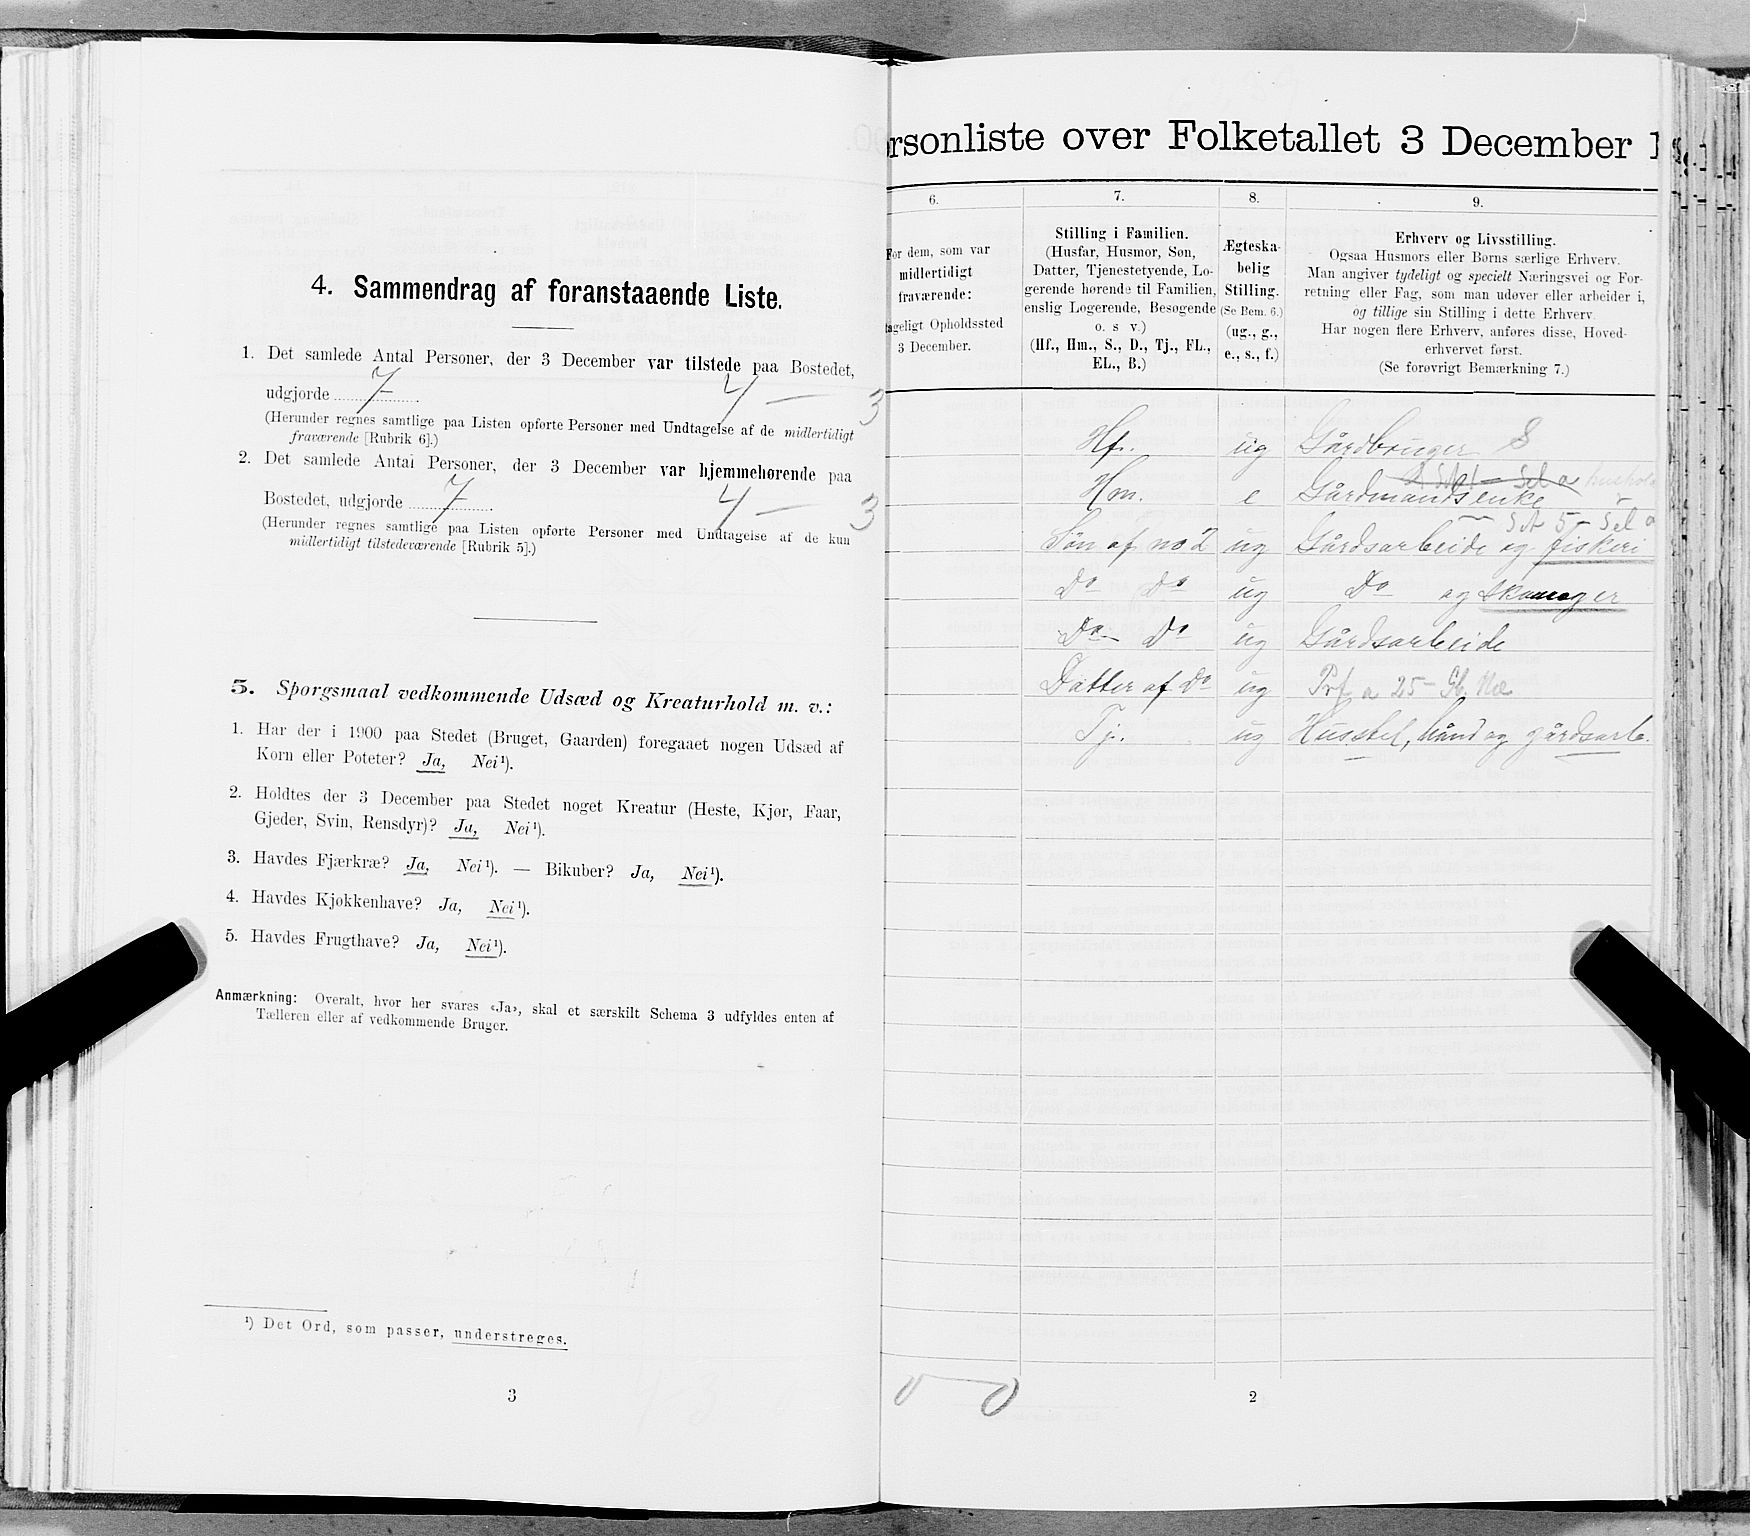 4. Sammendrag af foranstaaende Liste.
1. Det samlede Antal Personer, der 3 December var tilstede paa Bostedet,
udgjorde 7 4 — 3
(Herunder regnes samtlige paa Listen opførte Personer med Undtagelse af de midlertidigt
fraværende [Rubrik 6].)
2. Det samlede Antal Personer, der 3 December var hjemmehørende paa
Bostedet, udgjorde 7 4 — 3
(Herunder regnes samtlige paa Listen opførte Personer med Undtagelse af de kun
midlertidigt tilstedeværende [Rubrik 5].)
5. Spørgsmaal vedkommende Udsæd og Kreaturhold m. v.:
1. Har der i 1900 paa Stedet (Bruget, Gaarden) foregaaet nogen Udsæd af
Korn eller Poteter? Ja, Nei¹).
2. Holdtes der 3 December paa Stedet noget Kreatur (Heste, Kjør, Faar,
Gjeder, Svin, Rensdyr)? Ja, Nei¹).
3. Havdes Fjærkræ? Ja, Nei¹). — Bikuber? Ja, Nei¹).
4. Havdes Kjøkkenhave? Ja, Nei¹).
5. Havdes Frugthave? Ja, Nei¹).
Anmærkning: Overalt, hvor her svares «Ja», skal et særskilt Schema 3 udfyldes enten af
Tælleren eller af vedkommende Bruger.
¹) Det Ord, som passer, understreges.
3
rsonliste over Folketallet 3 December 1
6.
For dem, som var
midlertidigt
fraværende:
ageligt Opholdssted
3 December.
7.
Stilling i Familien.
(Husfar, Husmor, Søn,
Datter, Tjenestetyende, Lo-
gerende hørende til Familien,
enslig Logerende, Besøgende
o. s v.)
(Hf., Hm., S., D., Tj., FL.,
EL., B.)
8.
Ægteska-
belig
Stilling.
(Se Bem. 6.)
(ug., g.,
e., s., f.)
9.
Erhverv og Livsstilling.
Ogsaa Husmors eller Børns særlige Erhverv.
Man angiver tydeligt og specielt Næringsvei og For-
retning eller Fag, som man udøver eller arbeider i,
og tillige sin Stilling i dette Erhverv.
Har nogen flere Erhverv, anføres disse, Hoved-
erhvervet først.
(Se forøvrigt Bemærkning 7.)
Hf. ug Gårdbruger S
Hm. e Gårdmandsenke
Søn af no 2 ug Gårdsarbeide og fiskeri
Do Do ug Do og skomager
Do Do ug Gårdsarbeide
Datter af Do ug
Tj. ug Husstel, hånd og gårdsarb.
2